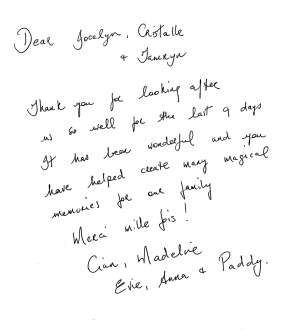 Dear Jocelyn, Cristalle
& Tamryn
Thank you for looking after
us so well for the last 9 days
It has been wonderful and you
have helped create many magical
memories for our family
Merci mille fois!
Cian, Madeline
Evie, Anna & Paddy.